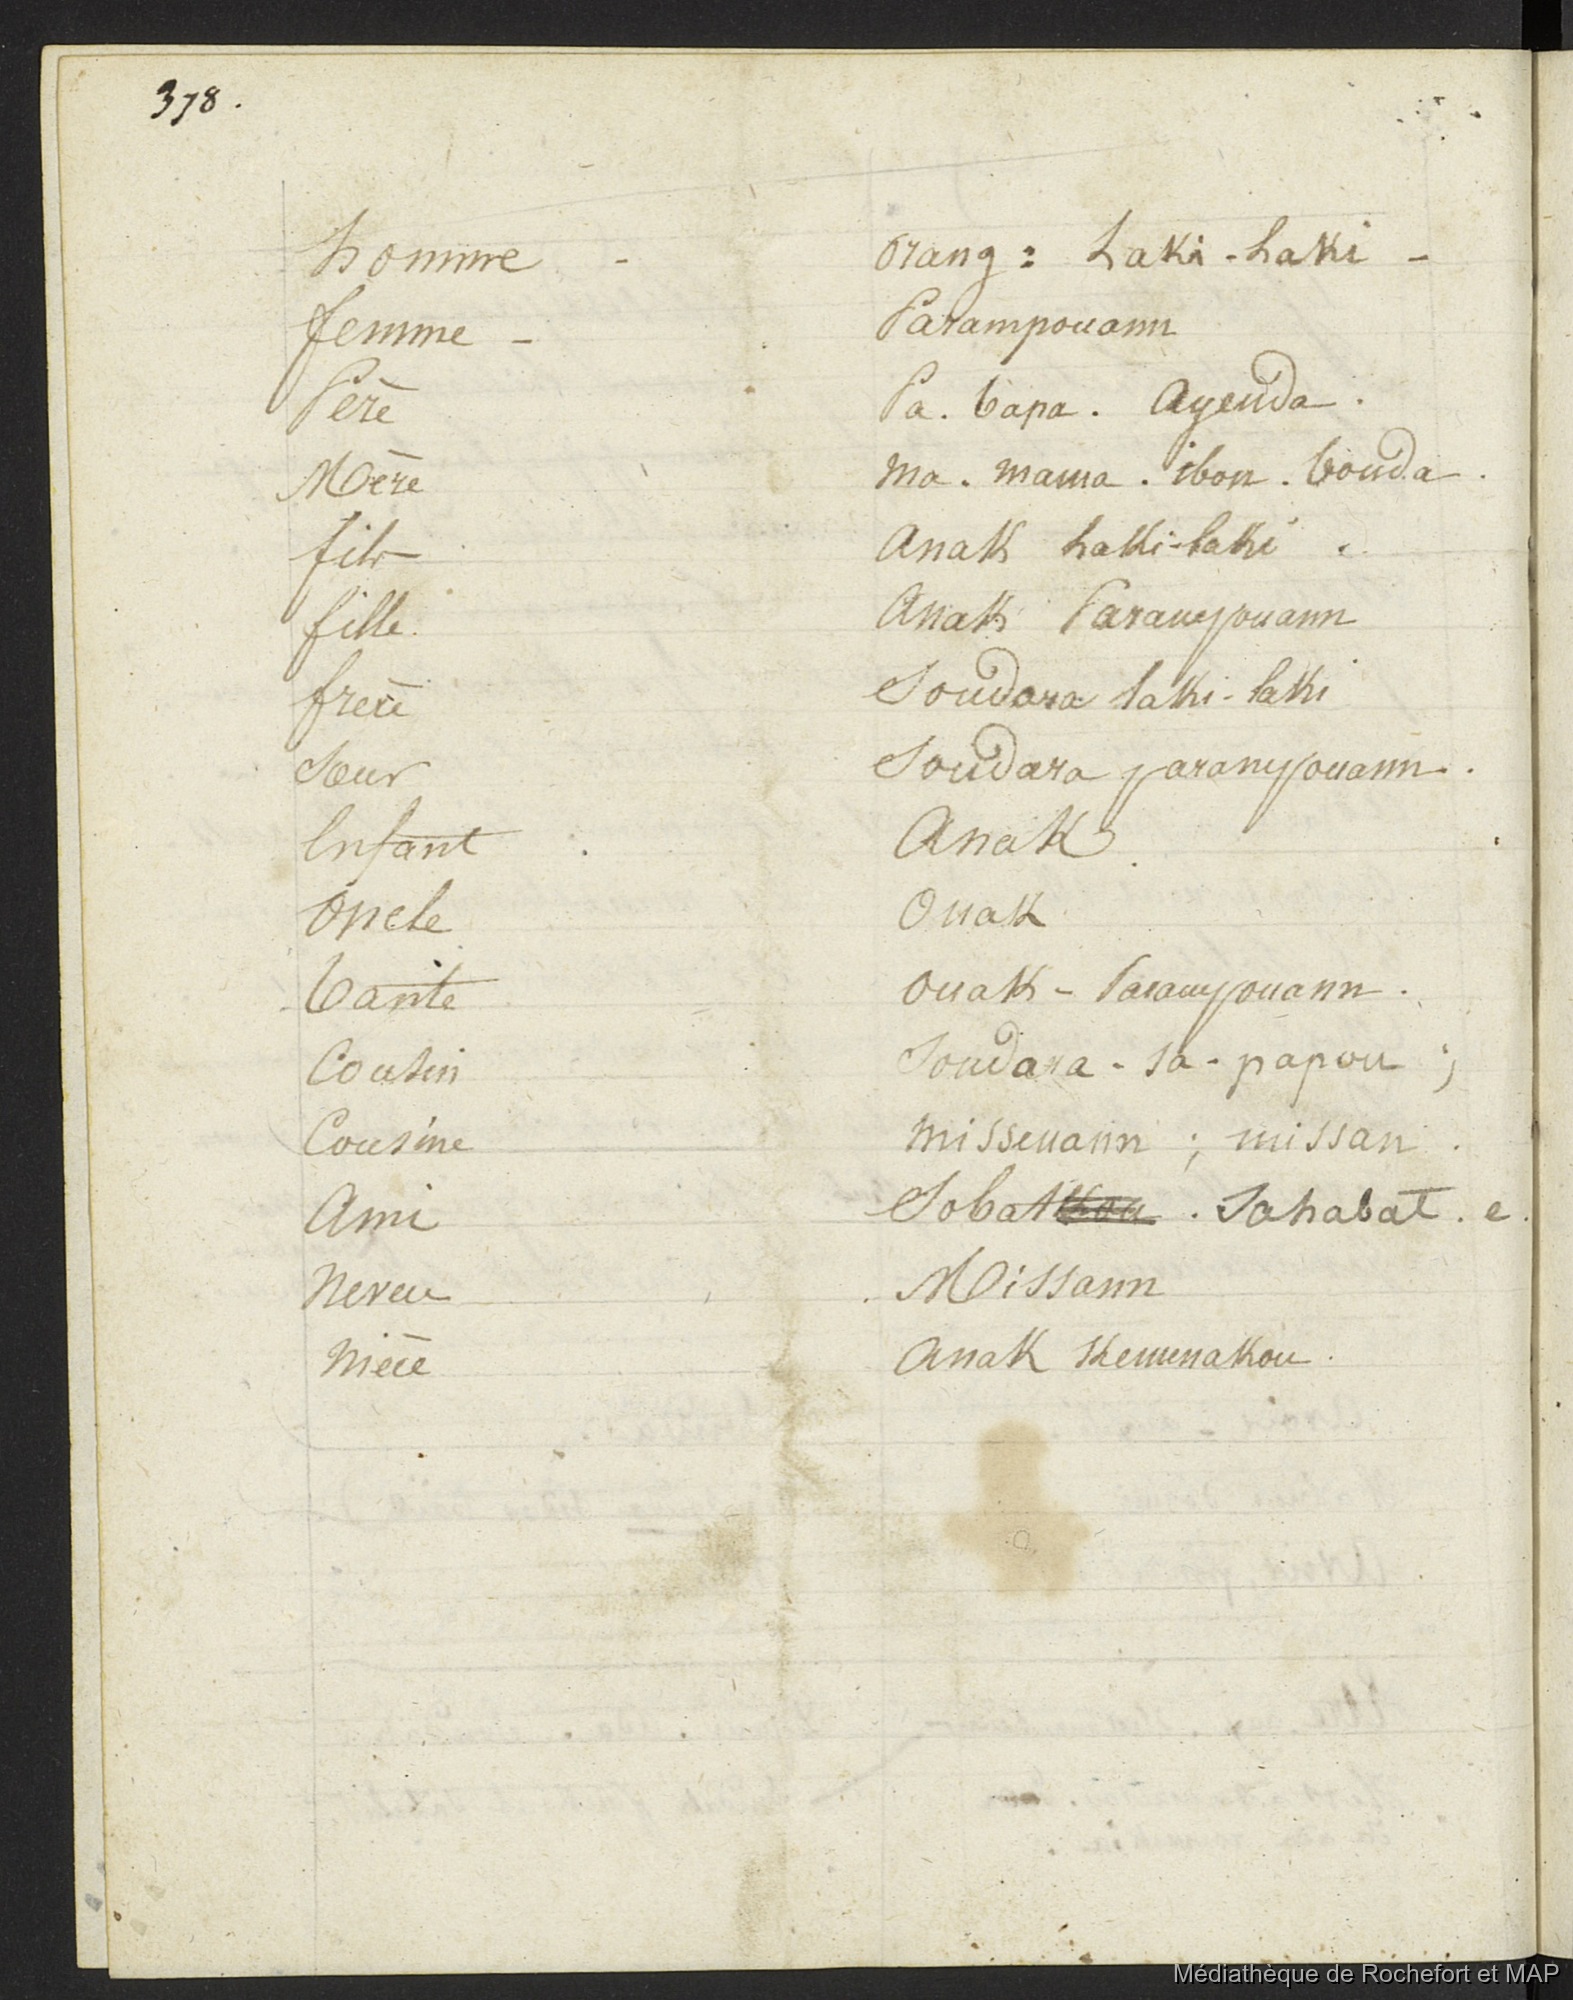 378.
homme - Orang : Laki - Laki -
femme - Parampouann
Père Pa . bapa . Ayenda .
Mère Ma . mama . ibou . bonda .
fils Anak Laki-laki .
fille . Anak Parampouann
frère Soudara laki - laki
Sœur Soudara parampouann .
Enfant . Anak
Oncle Ouak
Tante Ouak - Parampouann .
Cousin Soudara - sa - papou ;
Cousine missenann ; missan .
Ami Sobat . Sahabat . e .
Neveu Missann
Nièce Anak Kemenakou .
Médiathèque de Rochefort et MAP